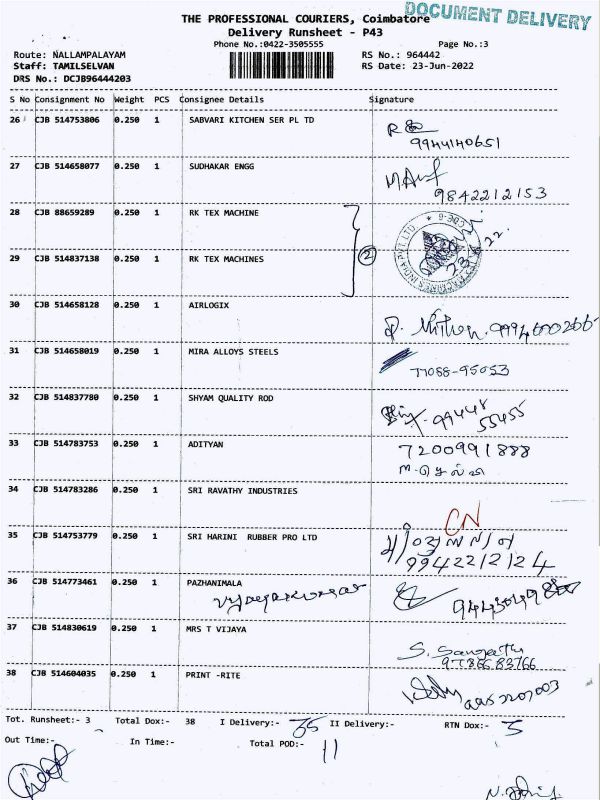 DOCUMENT DELIVERY
THE PROFESSIONAL COURIERS, Coimbatore
Delivery Runsheet - P43
Phone No.:0422-3505555 Page No.:3
Route: NALLAMPALAYAM RS No.: 964442
Staff: TAMILSELVAN RS Date: 23-Jun-2022
DRS No.: DCJB96444203
S No Consignment No Weight PCS Consignee Details Signature
26 CJB 514753806 0.250 1 SABVARI KITCHEN SER PL TD
9944140651
27 CJB 514658077 0.250 1 SUDHAKAR ENGG
9842212153
28 CJB 88659289 0.250 1 RK TEX MACHINE
29 CJB 514837138 0.250 1 RK TEX MACHINES
2
30 CJB 514658128 0.250 1 AIRLOGIX
31 CJB 514658019 0.250 1 MIRA ALLOYS STEELS
32 CJB 514837780 0.250 1 SHYAM QUALITY ROD
99448
55455
33 CJB 514783753 0.250 1 ADITYAN
7200991888
34 CJB 514783286 0.250 1 SRI RAVATHY INDUSTRIES
CN
35 CJB 514753779 0.250 1 SRI HARINI RUBBER PRO LTD
9942212124
36 CJB 514773461 0.250 1 PAZHANIMALA
37 CJB 514830619 0.250 1 MRS T VIJAYA
38 CJB 514604035 0.250 1 PRINT -RITE
Tot. Runsheet:- 3 Total Dox:- 38 I Delivery:- 35 II Delivery:- RTN Dox:- 3
Out Time:- In Time:- Total POD:- 11